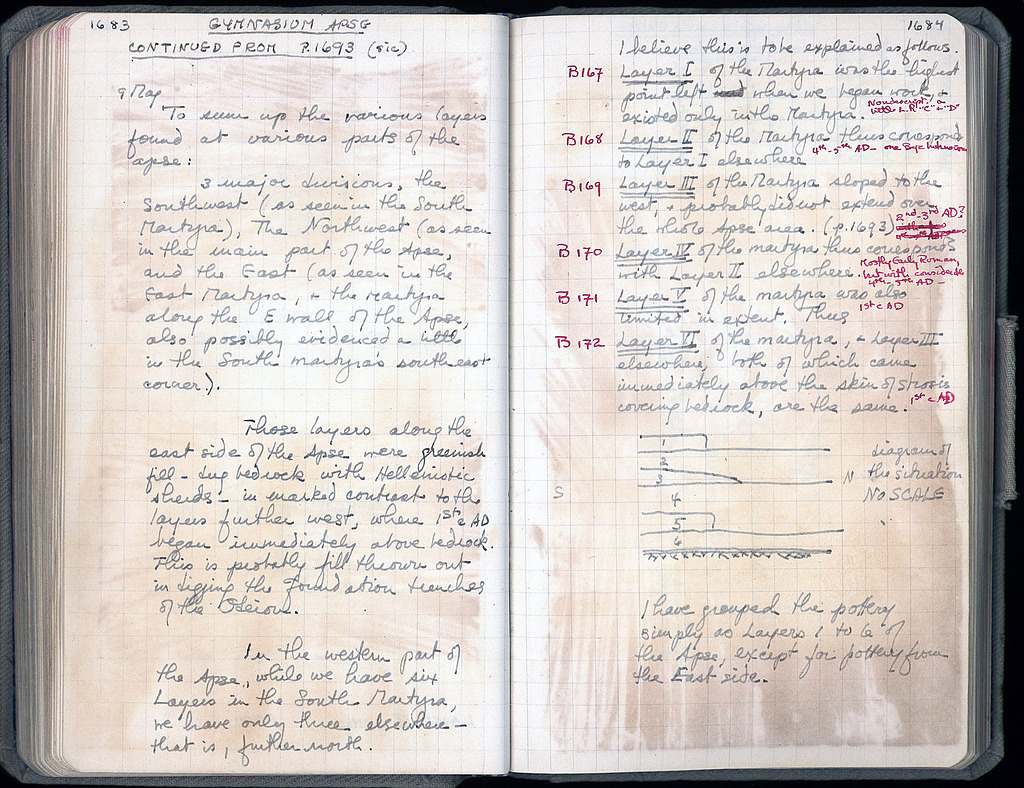 1683
GYMNASIUM APSE
CONTINUED FROM P.1693 (sic)
9 May
To sum up the various layers
found at various parts of the
apse:
3 major divisions, the
Southwest (as seen in the South
Martyra), The Northwest (as seen
in the main part of the Apse,
and the East (as seen in the
East Martyra, + the martyra
along the E wall of the Apse,
also possibly evidenced a little
in the South martyra's southeast
corner.).
Those layers along the
east side of the Apse were greenish
fill - dug bedrock with Hellenistic
sherds - in marked contrast to the
layers further west, where 1st c AD
began immediately above bedrock.
This is probably fill thrown out
in digging the foundation trenches
of the Odeion.
In the western part of
the Apse, while we have six
Layers in the South Martyra,
we have only three elsewhere -
that is, further north.
1684
I believe this is to be explained as follows.
B167 Layer I of the Martyra was the highest
point left when we began work, +
existed only in the Martyra.
Nondescript: a
little L.R. "C" + "D"
B168 Layer II of the Martyra thus corresponds
4th-5th AD - one Byz
to Layer I elsewhere
B169 Layer III of the Martyra sloped to the
west, + probably did not extend over
the whole Apse area. (p.1693)
2nd-3rd AD?
B170 Layer IV of the martyra thus corresponds
with Layer II elsewhere.
Mostly Early Roman,
but with considerable
4th-5th AD -
B171 Layer V of the martyra was also
limited in extent. Thus
1st c AD
B172 Layer VI of the martyra, + Layer III
elsewhere, both of which came
immediately above the skin of strosis
covering bedrock, are the same.
1st c AD
1
2
3
4
5
6
S
N
diagram of
the situation
NO SCALE
I have grouped the pottery
simply as Layers 1 to 6 of
the Apse, except for pottery from
the East side.